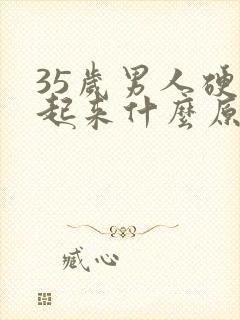 35歲男人硬
起来什麼原
臧心